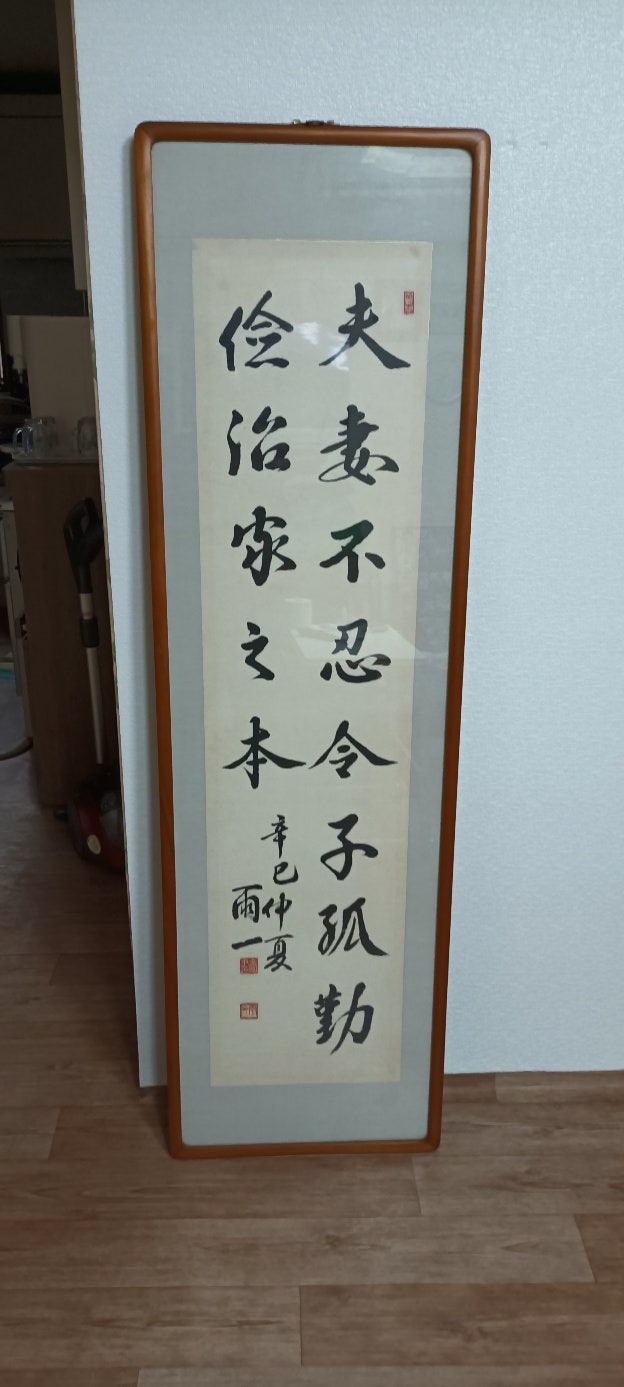 夫妻不忍令子孤勤
儉治家之本
辛巳仲夏
雨一